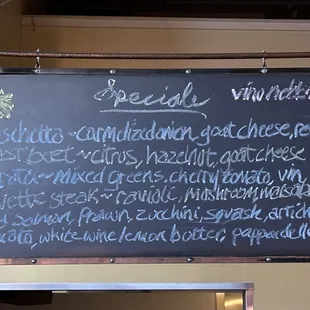 Speciale
vino nobile
schetta ~ carmelized onion, goat cheese, re
ast beet ~ citrus, hazelnut, goat cheese
rata ~ mixed greens, cherry tomato, vin
vette steak ~ ravioli, mushroom marsala
salmon, prawn, zucchini, squash, artich
ato, white wine lemon butter, pappardelle